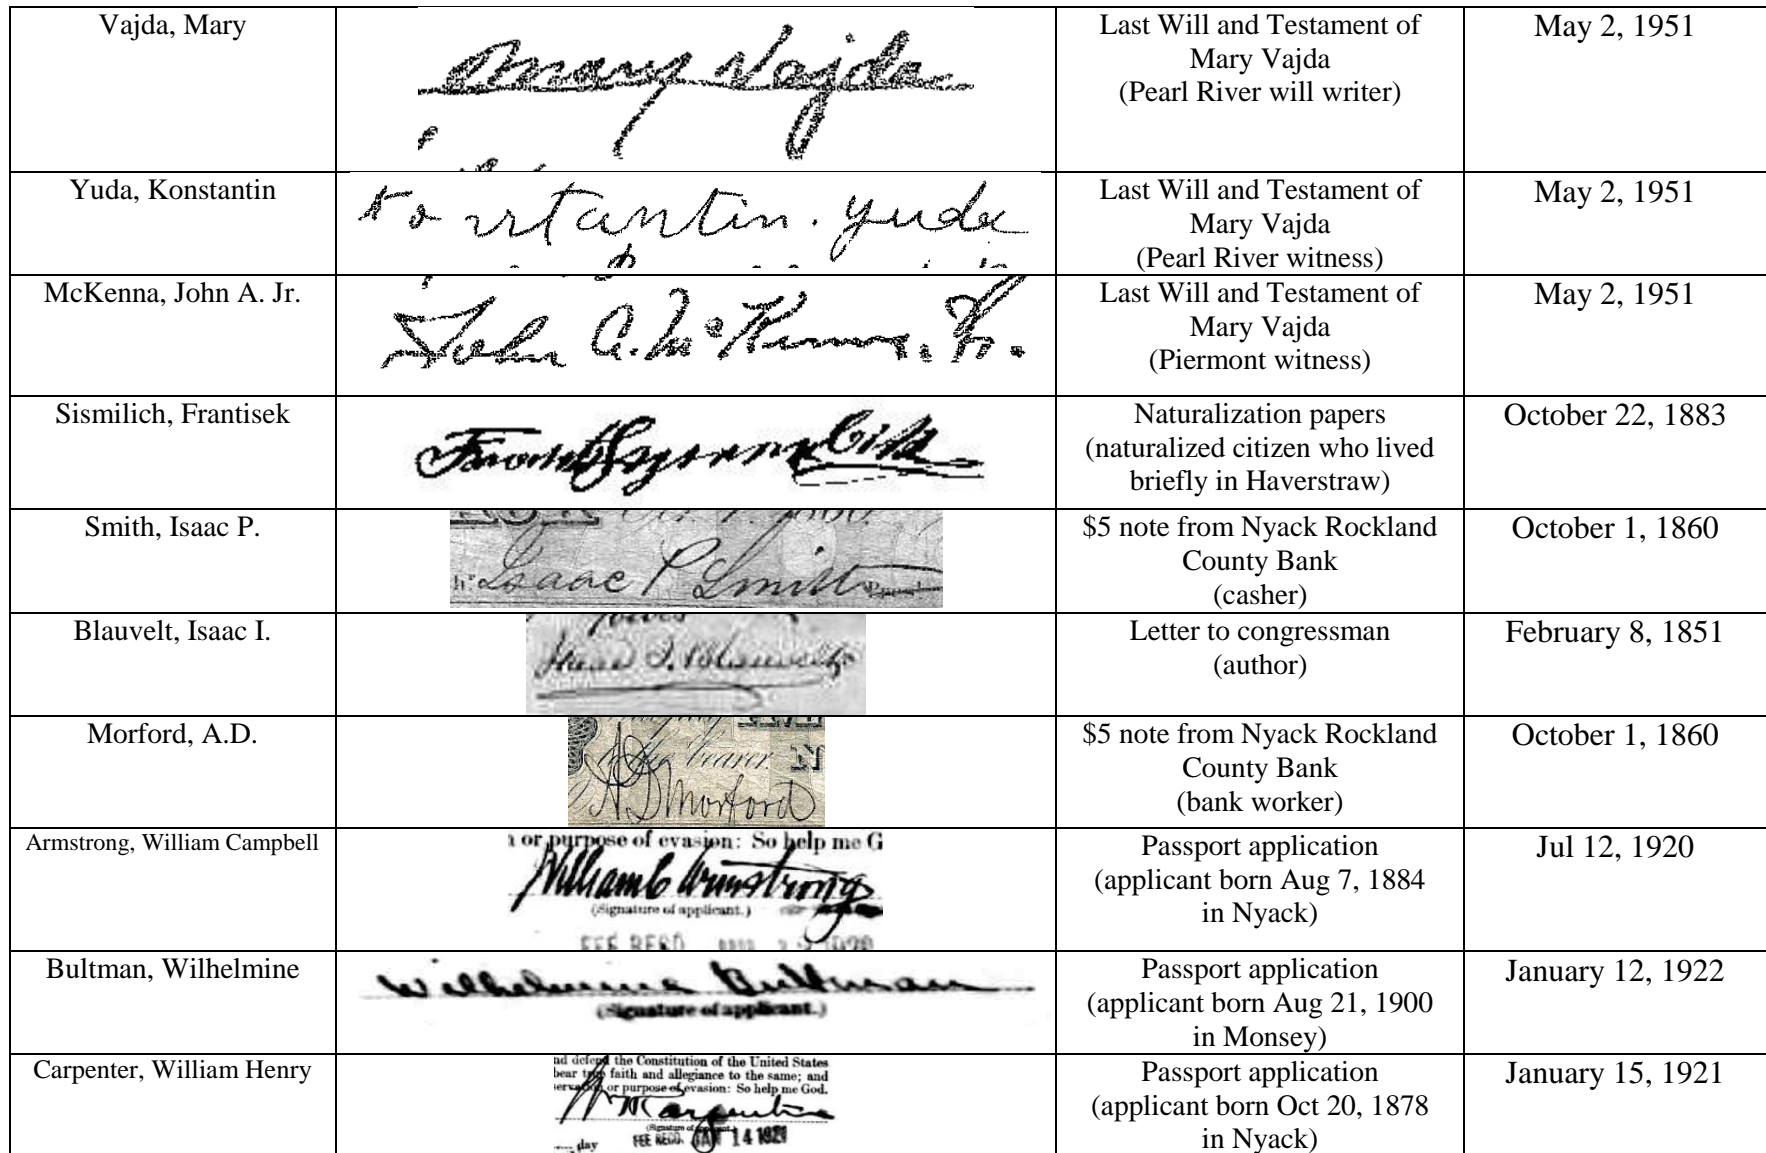 Vajda, Mary
Mary Vajda
Last Will and Testament of
Mary Vajda
(Pearl River will writer)
May 2, 1951
Yuda, Konstantin
Konstantin. Yuda
Last Will and Testament of
Mary Vajda
(Pearl River witness)
May 2, 1951
McKenna, John A. Jr.
John A. McKenna. Jr.
Last Will and Testament of
Mary Vajda
(Piermont witness)
May 2, 1951
Sismilich, Frantisek
Naturalization papers
(naturalized citizen who lived
briefly in Haverstraw)
October 22, 1883
Smith, Isaac P.
Isaac P Smith
$5 note from Nyack Rockland
County Bank
(casher)
October 1, 1860
Blauvelt, Isaac I.
Isaac I. Blauvelt
Letter to congressman
(author)
February 8, 1851
Morford, A.D.
bearer
A D Morford
$5 note from Nyack Rockland
County Bank
(bank worker)
October 1, 1860
Armstrong, William Campbell
or purpose of evasion: So help me G
William C Armstrong
(Signature of applicant.)
FEE REC'D
Passport application
(applicant born Aug 7, 1884
in Nyack)
Jul 12, 1920
Bultman, Wilhelmine
Wilhelmine Bultman
(Signature of applicant.)
Passport application
(applicant born Aug 21, 1900
in Monsey)
January 12, 1922
Carpenter, William Henry
nd defend the Constitution of the United States
bear true faith and allegiance to the same; and
or purpose of evasion: So help me God.
Wm H Carpenter
(Signature of applicant.)
day FEE RECD. JAN 14 1921
Passport application
(applicant born Oct 20, 1878
in Nyack)
January 15, 1921